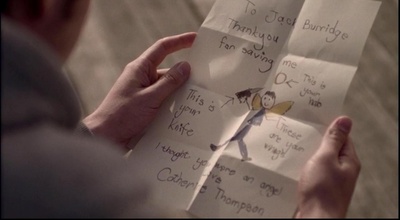 To Jack Burridge
Thankyou
for saving me
This is
your
halo
This is
your
knife
These
are your
wings
I thought you were an angel
Catherine Thompson